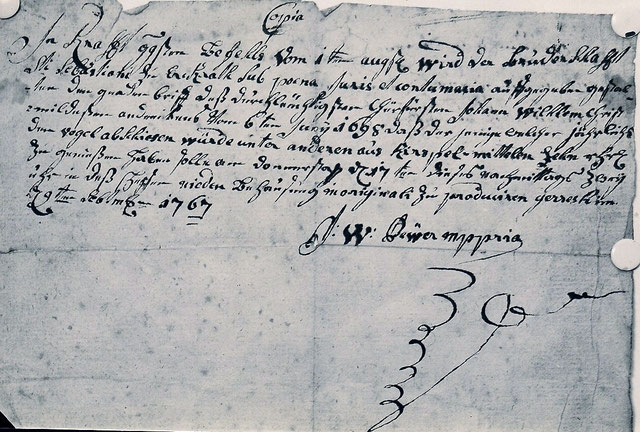 Copia
In Krafft ggsten Befelchs vom 1ten augst wird der bruderschafft
Sti Sebastiani zu erckrath sub poena juris et contumacia auffgegeben
den gnaden brieff daß durchlauchtigsten Churfürsten Johann Wilhelm
mildesten andenckens vom 6ten Juny 1698 daß der jenige welcher jährlichs
den vogel abschiesen würde unter anderen aus Kirspels mittelen Zehn rthlr
Zu geniessen haben solle am donnerstag d 17ten dieses nachmittags Zwey
uhr in deß behausung in originali Zu produciren gerresheim
9ten 1767
J: W: Bewer mppria